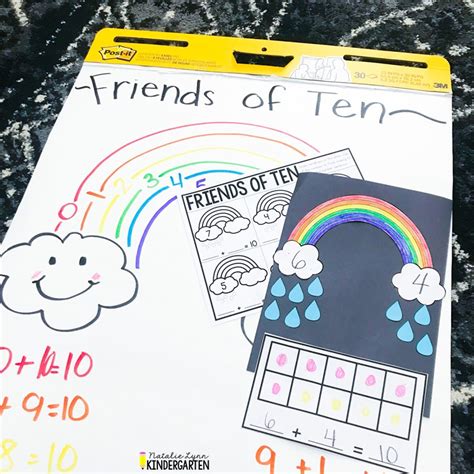 Post-it
30
3M
~Friends of Ten~
0 1 2 3 4 5
FRIENDS OF TEN
7
= 10
5
6 4
0 + 10 = 10
+ 9 = 10
8 = 10
6 + 4 = 10
9 + 1
Natalie Lynn
KINDERGARTEN